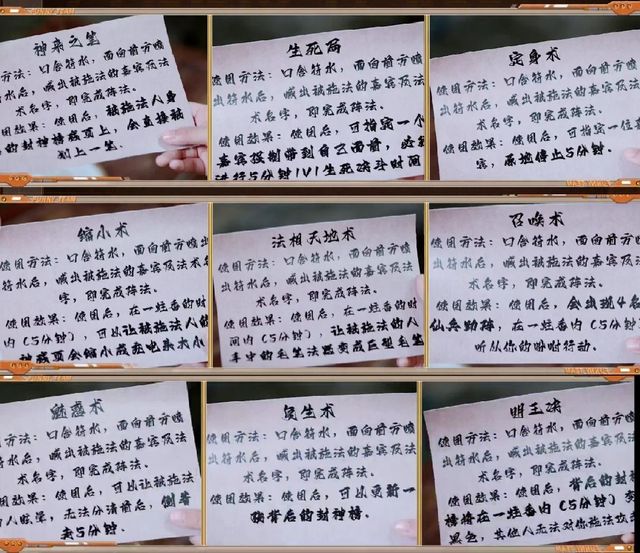 神来之笔
使用方法：口含符水，面向前方喷
出符水后，喊出被施法的嘉宾及法
术名字，即完成阵法。
使用效果：使用后，被施法人身
的封神榜成页上，会直接被
划上一笔。
生死局
使用方法：口含符水，面向前方喷
出符水后，喊出被施法的嘉宾及法
术名字，即完成阵法。
使用效果：使用后，可指定一个
嘉宾强制带到自己面前，
进行5分钟1V1生死决斗时间
定身术
使用方法：口含符水，面向前方
出符水后，喊出被施法的嘉宾
术名字，即完成阵法。
使用效果：使用后，可指定一位
宾，原地停止5分钟。
缩小术
使用方法：口含符水，面向前方喷出
符水后，喊出被施法的嘉宾及法术名
字，即完成阵法。
使用效果：使用后，在一炷香的时
间内（5分钟），可以让被施法人的
神成页会缩小成充电头大小
法相天地术
使用方法：口含符水，面向前方喷
出符水后，喊出被施法的嘉宾及法
术名字，即完成阵法。
使用效果：使用后，在一炷香的时
间内（5分钟），让被施法的人
手中的毛笔法逐变成巨型毛笔
召唤术
使用方法：口含符水，面向前方喷
出符水后，喊出被施法的嘉宾及法
术名字，即完成阵法。
使用效果：使用后，会出现4
仙兵助阵，在一炷香内（5分钟）
听从你的吩咐行动。
魅惑术
使用方法：口含符水，面向前方喷
出符水后，喊出被施法的嘉宾及法
术名字，即完成阵法。
使用效果：使用后，可以让被施法
的人眩晕，无法分清前后，倒着
走5分钟。
复生术
使用方法：口含符水，面向前方喷
出符水后，喊出被施法的嘉宾及法
术名字，即完成阵法。
使用效果：使用后，可以更新一
张背后的封神榜。
明王诀
使用方法：口含符水，面向前方喷
出符水后，喊出被施法的嘉宾及法
术名字，即完成阵法。
使用效果：使用后，背后的封神
榜将在一炷香内（5分钟）变
黑色，其他人无法对你施法攻击